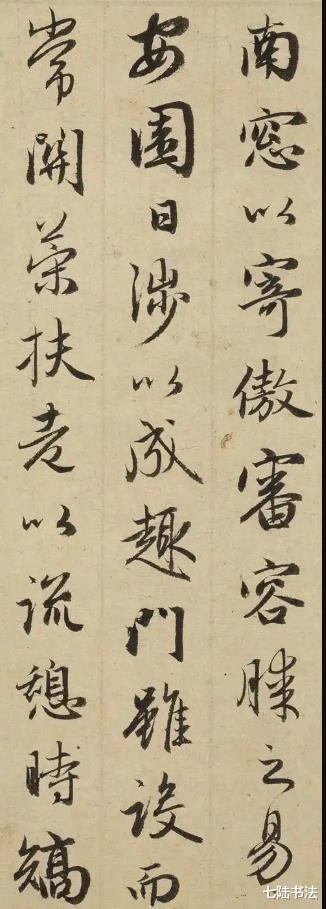 南窓以寄傲審容膝之易
安園日涉以成趣門雖設而
常關策扶老以流憩時矯
七陆书法